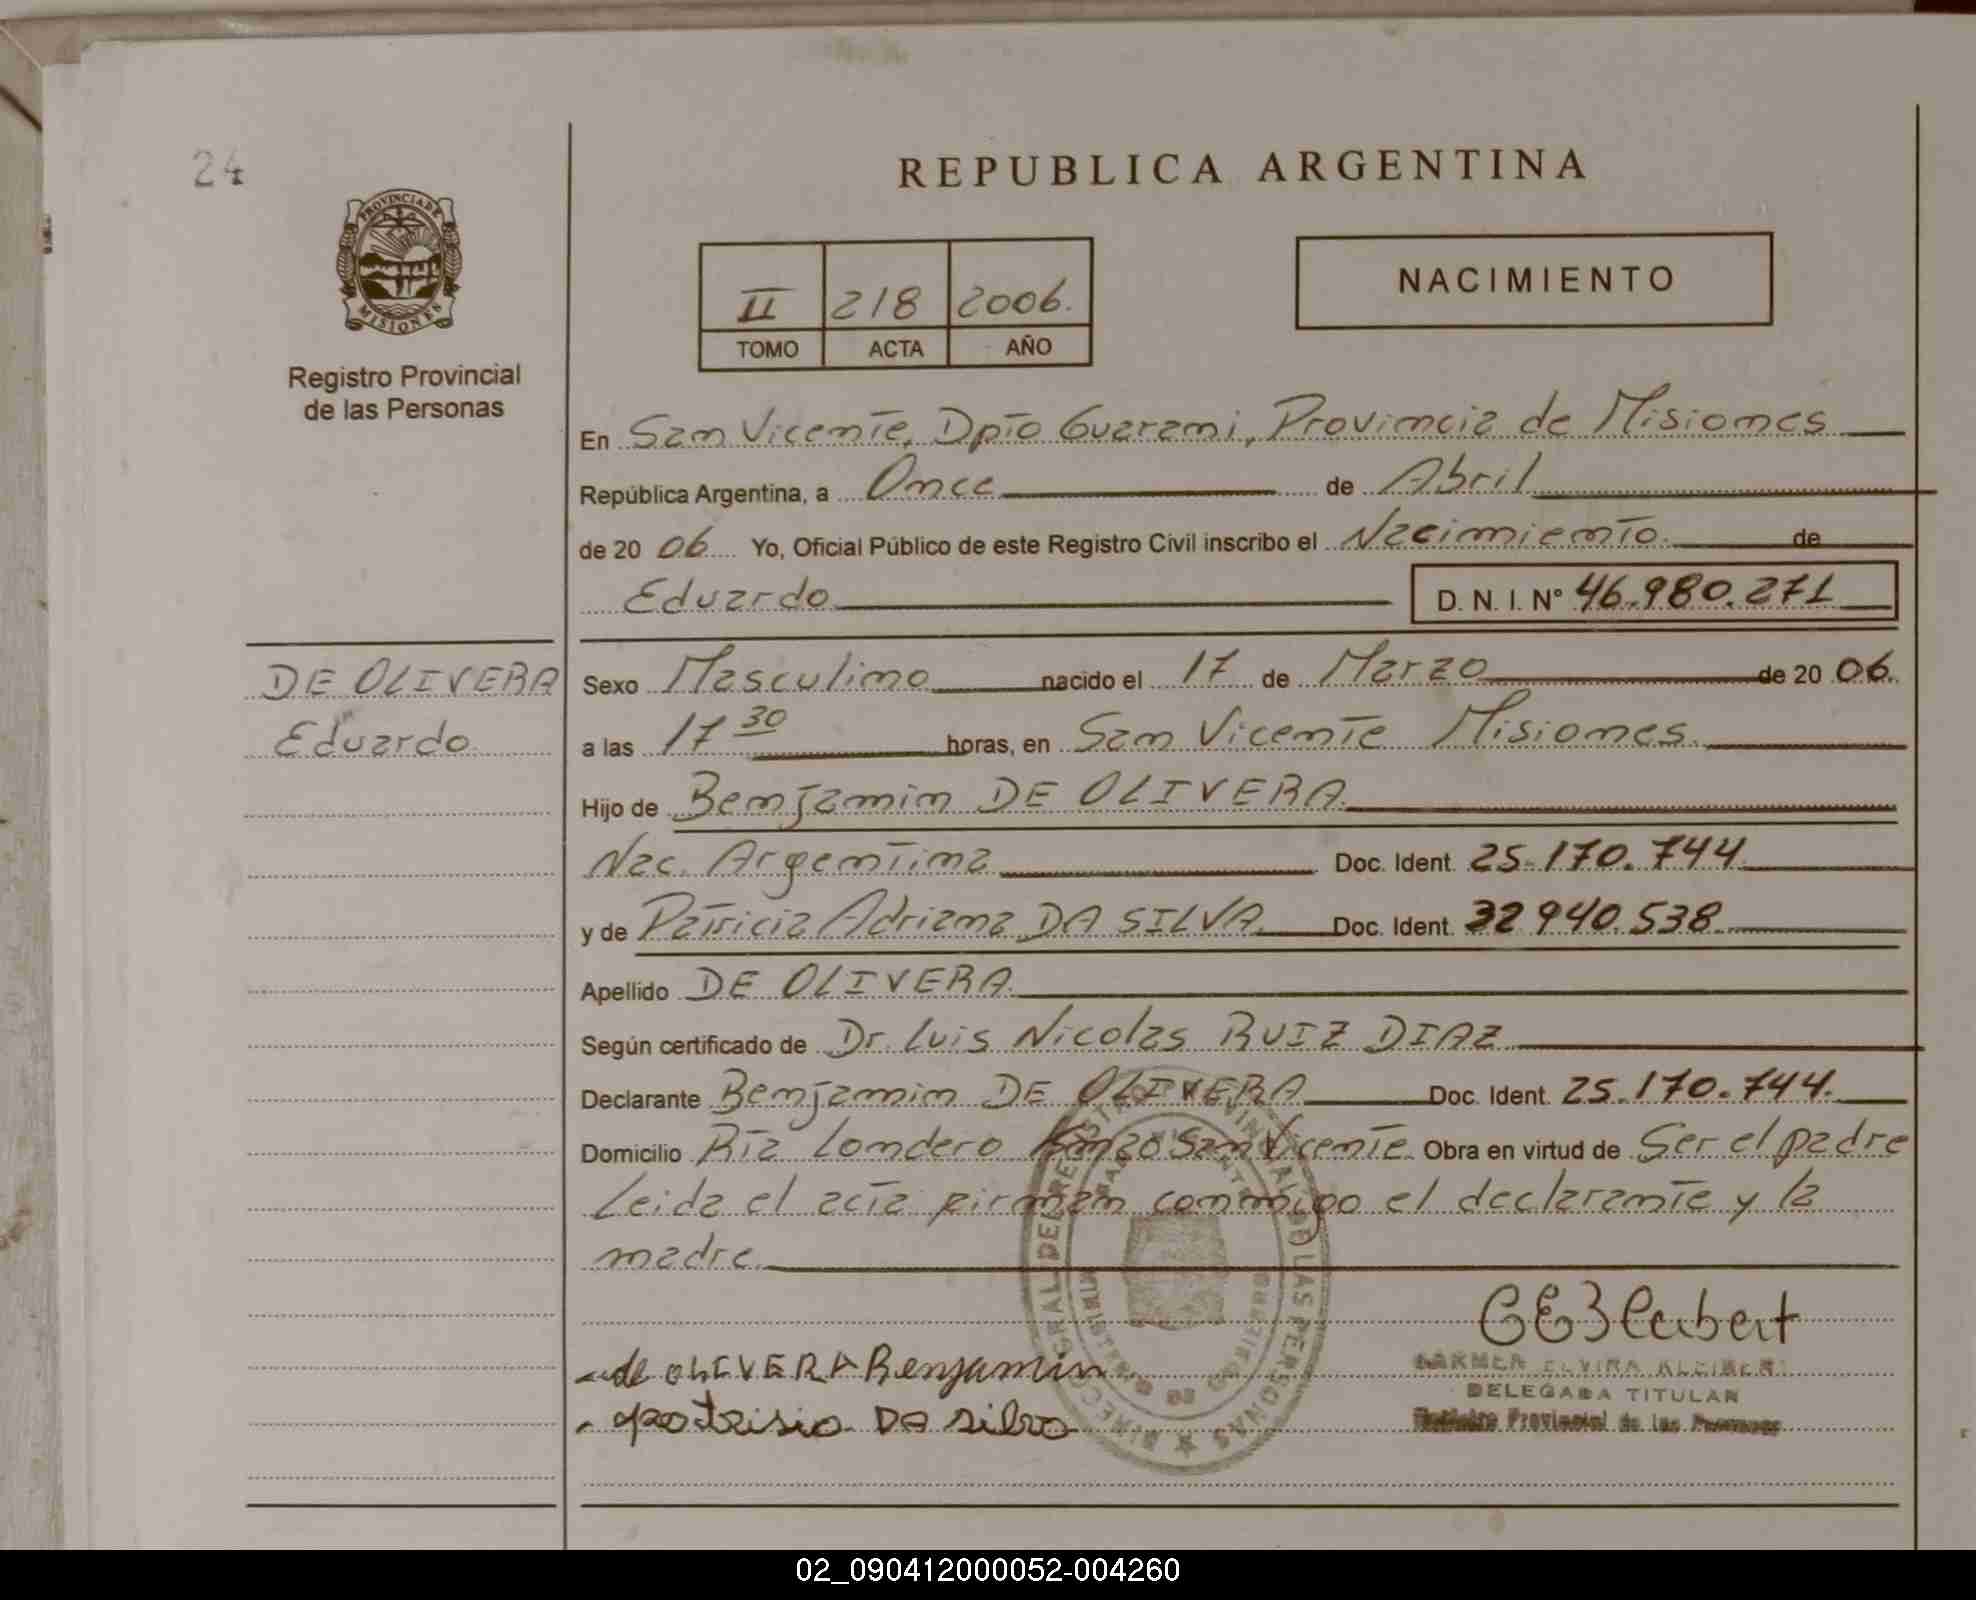 24
PROVINCIA DE
MISIONES
Registro Provincial
de las Personas
REPUBLICA ARGENTINA
II 218 2006.
TOMO ACTA AÑO
NACIMIENTO
En San Vicente, Dpto Guarani, Provincia de Misiones
República Argentina, a Once de Abril
de 20 06 Yo, Oficial Público de este Registro Civil inscribo el Nacimiento de
Eduardo D. N. I. N° 46.980.271
DE OLIVERA
Eduardo
Sexo Masculino nacido el 17 de Marzo de 20 06.
a las 17 30 horas, en San Vicente Misiones.
Hijo de Benjamin DE OLIVERA
Nac. Argentina Doc. Ident. 25.170.744
y de Patricia Adriana DA SILVA Doc. Ident. 32 940.538
Apellido DE OLIVERA
Según certificado de Dr. Luis Nicolas RUIZ DIAZ
Declarante Benjamin DE OLIVERA Doc. Ident. 25.170.744.
Domicilio Londero San Vicente Obra en virtud de Ser el padre
Leida el acta firman conmigo el declarante y la
madre.
de OLIVERA Benjamin
DA silva
CARMEN ELVIRA KLEIBERT
DELEGADA TITULAR
Provincial de las Personas
02_090412000052-004260